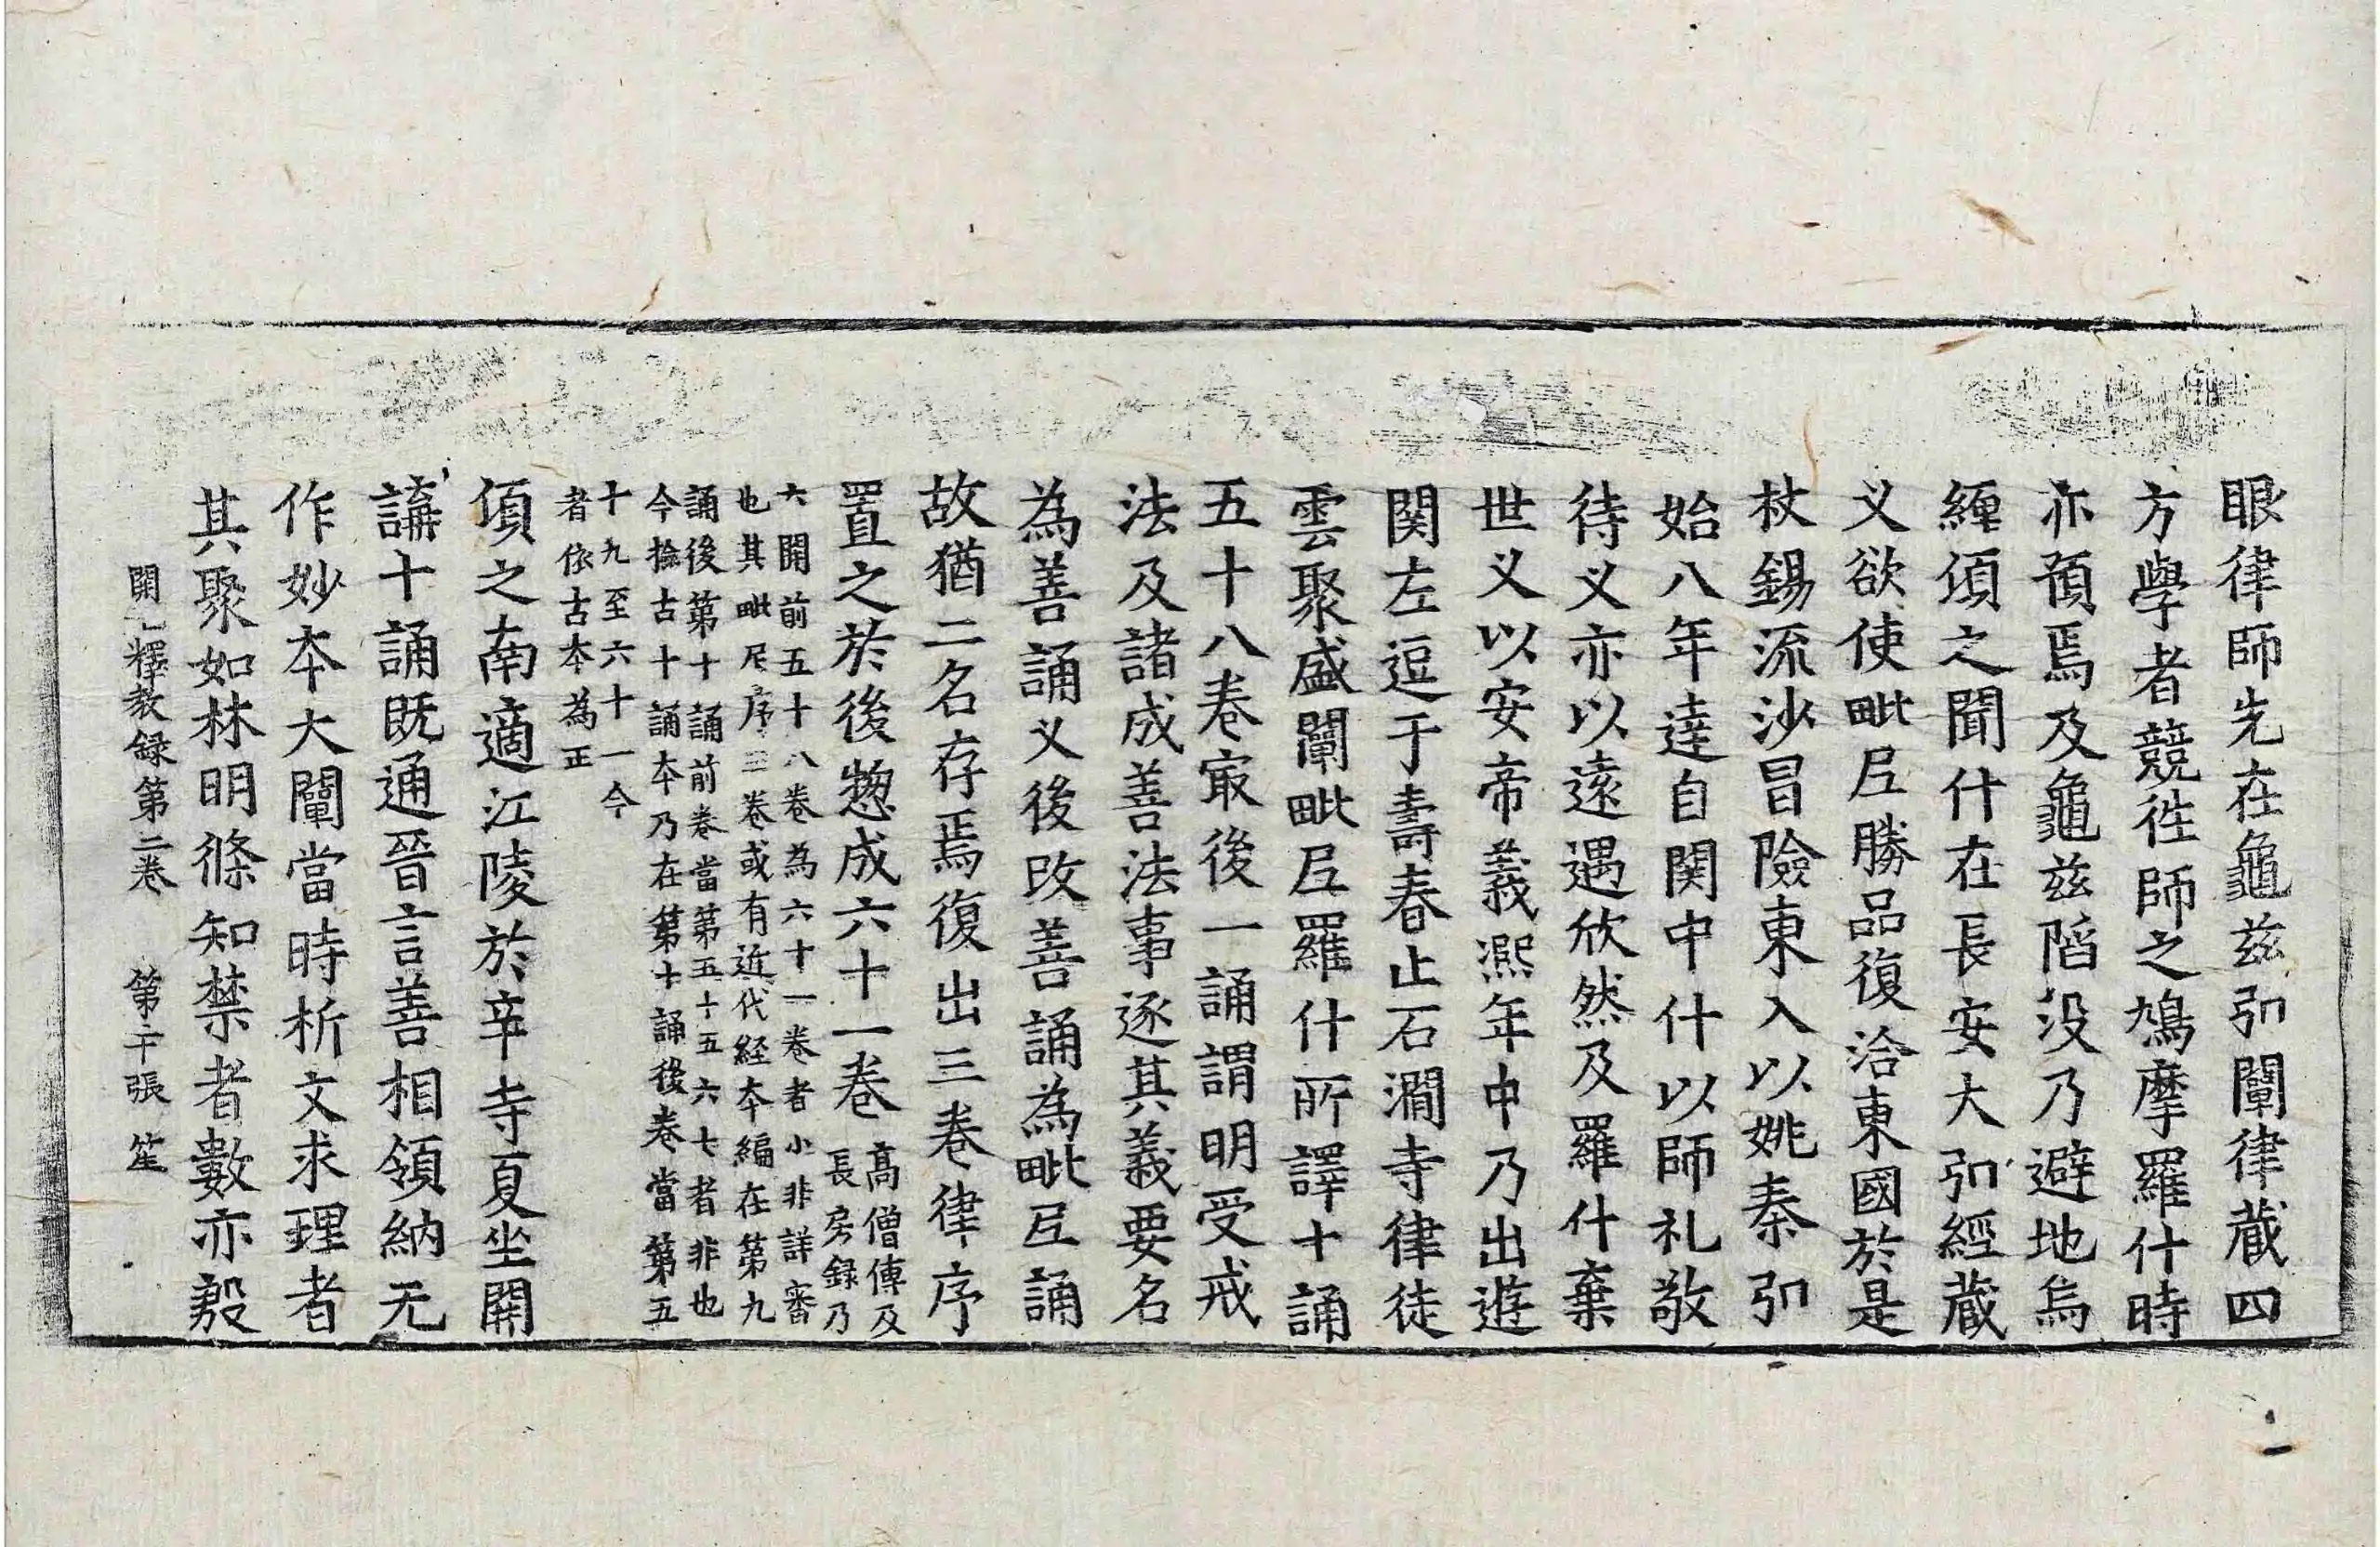 眼律師先在龜茲弘闡律蔵四
方學者競徃師之鳩摩羅什時
亦預焉及龜茲陷没乃避地烏
纏頃之聞什在長安大弘經蔵
义欲使毗尼勝品復洽東國於是
杖錫流沙冒險東入以姚秦弘
始八年達自関中什以師礼敬
待义亦以遠遇欣然及羅什棄
世义以安帝義熈年中乃出遊
関左逗于壽春止石澗寺律徒
雲聚盛闡毗尼羅什所譯十誦
五十八卷㝡後一誦謂明受戒
法及諸成善法事逐其義要名
為善誦义後改善誦為毗尼誦
故猶二名存焉復出三卷律序
置之於後惣成六十一卷
高僧傳及
長房録乃
六開前五十八卷為六十一卷者小非詳審
也其毗尼序三卷或有近代経本編在第九
誦後第十誦前卷當第五十五六七者非也
今撿古十誦本乃在第十誦後卷當第五
十九至六十一今
者依古本為正
頃之南適江陵於辛寺夏坐開
講十誦既通晉言善相領納无
作妙本大闡當時析文求理者
其聚如林明條知禁者數亦殷
開元釋教録第三卷 第二十張 笙